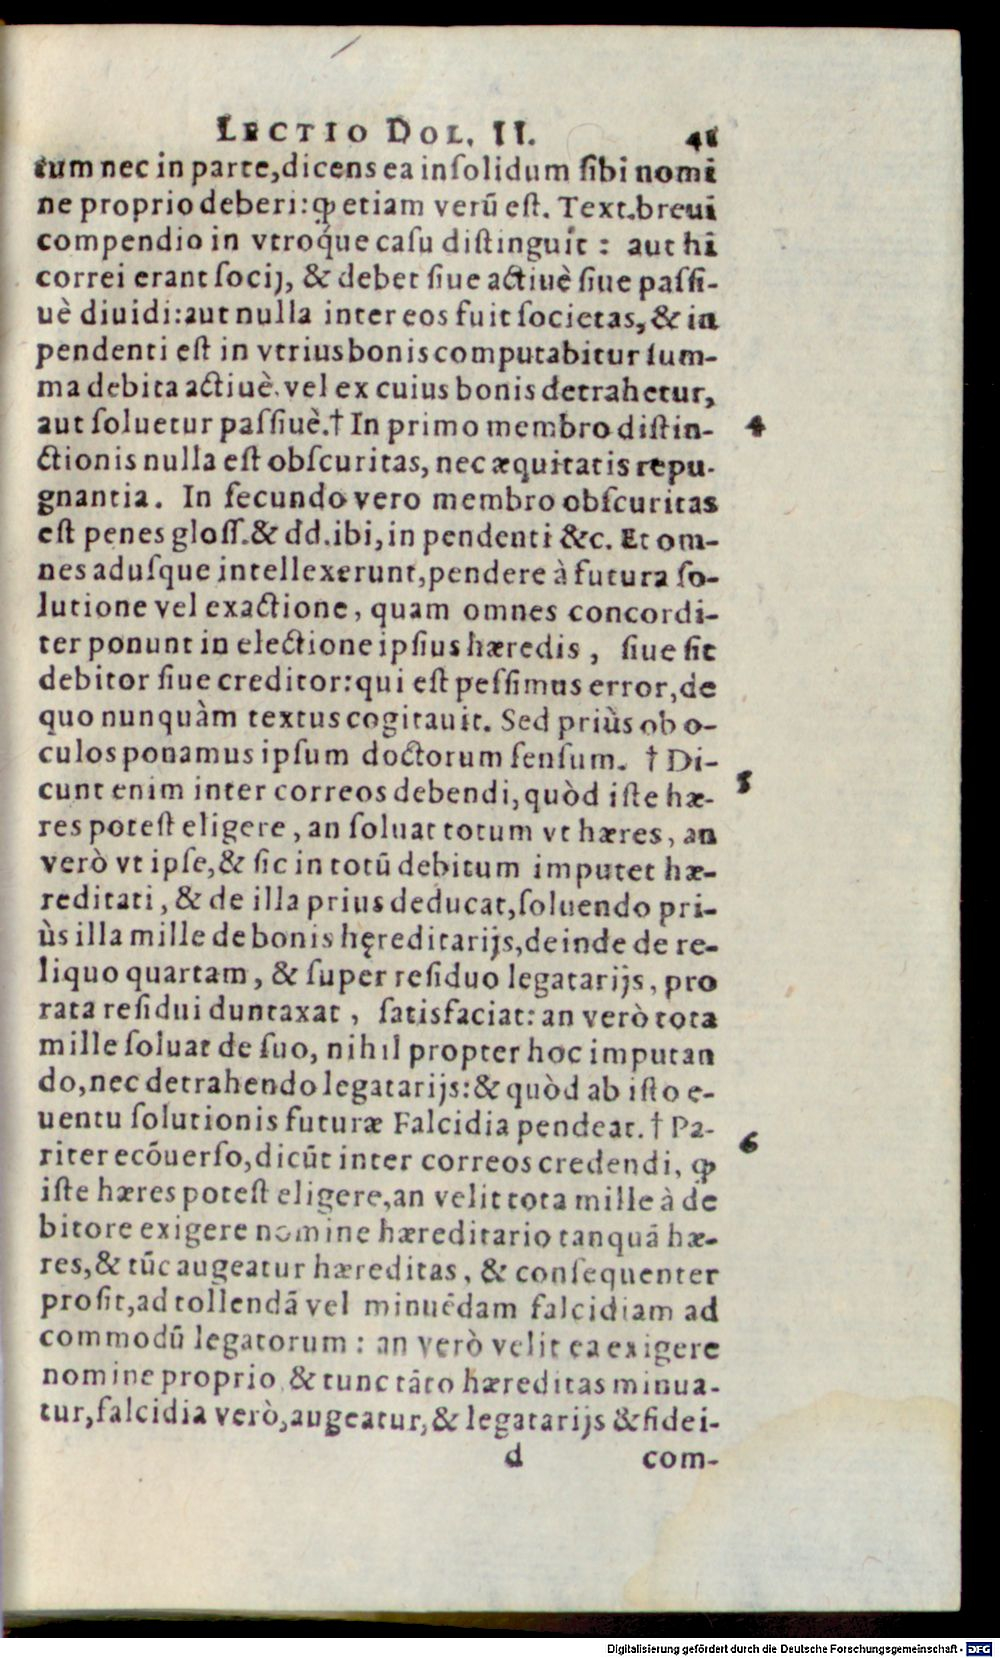 LECTIO DOL. II. 41
tum nec in parte, dicens ea in solidum sibi nomi
ne proprio deberi: ꝙ etiam verũ est. Text. breui
compendio in vtroq́ue casu distinguit : aut hi
correi erant socij, & debet siue actiuè siue passi-
uè diuidi: aut nulla inter eos fuit societas, & in
pendenti est in vtrius bonis computabitur sum-
ma debita actiuè. vel ex cuius bonis detrahetur,
aut soluetur passiuè. † In primo membro distin- 4
ctionis nulla est obscuritas, nec æquitatis repu-
gnantia. In secundo vero membro obscuritas
est penes gloss. & dd. ibi, in pendenti &c. Et om-
nes adusque intellexerunt, pendere à futura so-
lutione vel exactione, quam omnes concordi-
ter ponunt in electione ipsius hæredis, siue sit
debitor siue creditor: qui est pessimus error, de
quo nunquàm textus cogitauit. Sed priùs ob o-
culos ponamus ipsum doctorum sensum. † Di-
cunt enim inter correos debendi, quòd iste hæ- 5
res potest eligere, an soluat totum vt hæres, an
verò vt ipse, & sic in totũ debitum imputet hæ-
reditati, & de illa prius deducat, soluendo pri-
ùs illa mille de bonis hęreditarijs, deinde de re-
liquo quartam, & super residuo legatarijs, pro
rata residui duntaxat, satisfaciat: an verò tota
mille soluat de suo, nihil propter hoc imputan
do, nec detrahendo legatarijs: & quòd ab isto e-
uentu solutionis futuræ Falcidia pendeat. † Pa-
riter ecõuerso, dicũt inter correos credendi, ꝙ 6
iste hæres potest eligere, an velit tota mille à de
bitore exigere nomine hæreditario tanquã hæ-
res, & tũc augeatur hæreditas, & consequenter
prosit, ad tollendã vel minuẽdam falcidiam ad
commodũ legatorum : an verò velit ea exigere
nomine proprio & tunc tãto hæreditas minua-
tur, falcidia verò, augeatur, & legatarijs & fidei-
d com-
Digitalisierung gefördert durch die Deutsche Forschungsgemeinschaft - DFG